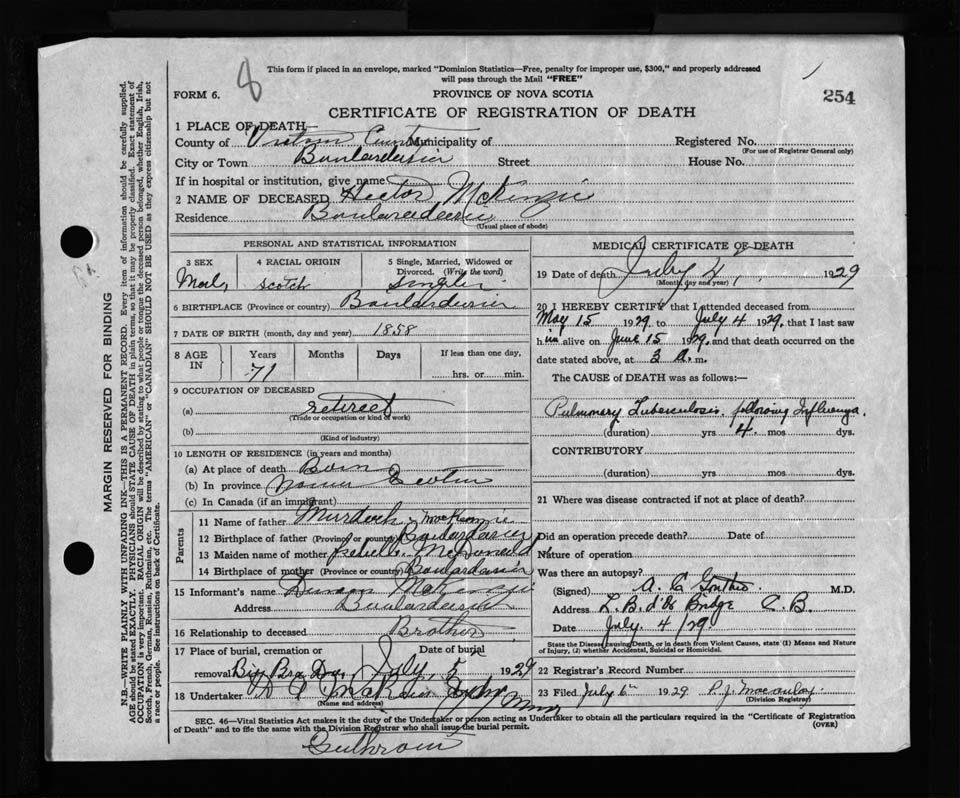 8
This form if placed in an envelope, marked "Dominion Statistics—Free, penalty for improper use, $300," and properly addressed
will pass through the Mail "FREE"
FORM 6.
PROVINCE OF NOVA SCOTIA
254
CERTIFICATE OF REGISTRATION OF DEATH
1 PLACE OF DEATH
County of Municipality of Registered No.
(For use of Registrar General only)
City or Town Boulardarie Street House No.
If in hospital or institution, give name
2 NAME OF DECEASED Hector McKenzie
Residence Boulardarie
(Usual place of abode)
PERSONAL AND STATISTICAL INFORMATION
3 SEX
Male
4 RACIAL ORIGIN
Scotch
5 Single, Married, Widowed or
Divorced. (Write the word)
Single
6 BIRTHPLACE (Province or country) Boulardarie
7 DATE OF BIRTH (month, day and year) 1858
8 AGE
IN
Years
71
Months
Days
If less than one day,
hrs. or min.
9 OCCUPATION OF DECEASED
(a) retired
(Trade or occupation or kind of work)
(b)
(Kind of industry)
10 LENGTH OF RESIDENCE (in years and months)
(a) At place of death Born
(b) In province Nova Scotia
(c) In Canada (if an immigrant)
Parents
11 Name of father Murdoch McKenzie
12 Birthplace of father (Province or country) Boulardarie
13 Maiden name of mother McDonald
14 Birthplace of mother (Province or country) Boulardarie
15 Informant's name McKenzie
Address Boulardarie
16 Relationship to deceased Brother
17 Place of burial, cremation or
removal Big Bras Dor
Date of burial
July 5 1929
18 Undertaker
(Name and address)
MEDICAL CERTIFICATE OF DEATH
19 Date of death July 4, 1929
(Month, day and year)
20 I HEREBY CERTIFY that I attended deceased from
May 15 1929 to July 4 1929, that I last saw
him alive on June 15 1929, and that death occurred on the
date stated above, at 3 a.m.
The CAUSE of DEATH was as follows:—
Pulmonary Tuberculosis following Influenza.
(duration) yrs 4 mos dys.
CONTRIBUTORY
(duration) yrs mos dys.
21 Where was disease contracted if not at place of death?
Did an operation precede death? Date of
Nature of operation
Was there an autopsy?
(Signed) A. C. M.D.
Address Bridge C.B.
Date July 4/29.
State the Disease causing Death, or in death from Violent Causes, state (1) Means and Nature
of Injury, (2) whether Accidental, Suicidal or Homicidal.
22 Registrar's Record Number
23 Filed July 6th 1929 P. J. Macaulay
(Division Registrar)
SEC. 46—Vital Statistics Act makes it the duty of the Undertaker or person acting as Undertaker to obtain all the particulars required in the "Certificate of Registration
of Death" and to file the same with the Division Registrar who shall issue the burial permit.
(OVER)
MARGIN RESERVED FOR BINDING
N.B.—WRITE PLAINLY WITH UNFADING INK—THIS IS A PERMANENT RECORD. Every item of information should be carefully supplied.
AGE should be stated EXACTLY. PHYSICIANS should STATE CAUSE OF DEATH in plain terms, so that it may be properly classified. Exact statement of
OCCUPATION is very important. RACIAL ORIGIN will be described by stating to what people or tongue the deceased person belonged, whether English, Irish,
Scotch, French, German, Russian, Ruthenian, etc. The terms "AMERICAN" or "CANADIAN" SHOULD NOT BE USED as they express citizenship but not
a race or people. See instructions on back of Certificate.